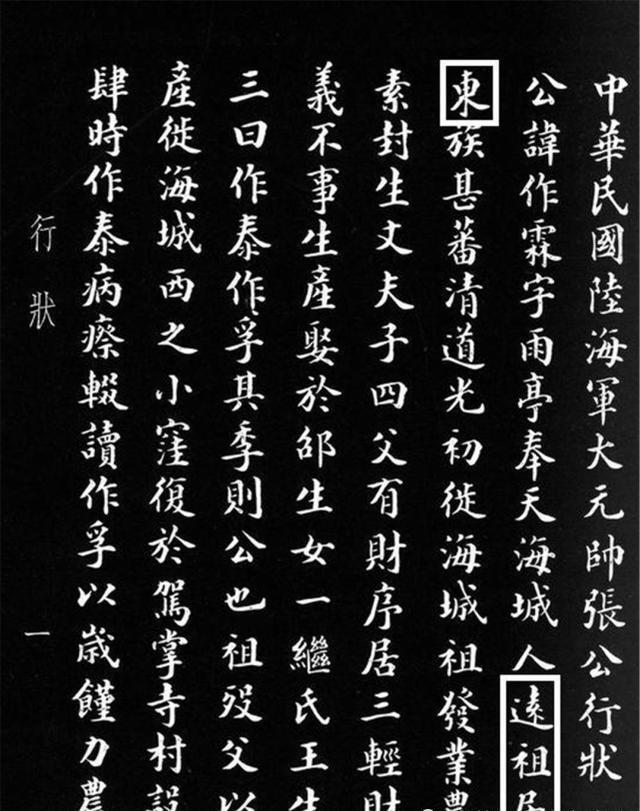 中華民國陸海軍大元帥張公行狀
公諱作霖字雨亭奉天海城人遠祖居
東族甚蕃清道光初徙海城祖發業農
素封生丈夫子四父有財序居三輕財
義不事生產娶於邵生女一繼氏王生
三曰作泰作孚其季則公也祖歿父以
產徙海城西之小窪復於駕掌寺村設
肆時作泰病瘵輟讀作孚以歲饉力農
行狀
一